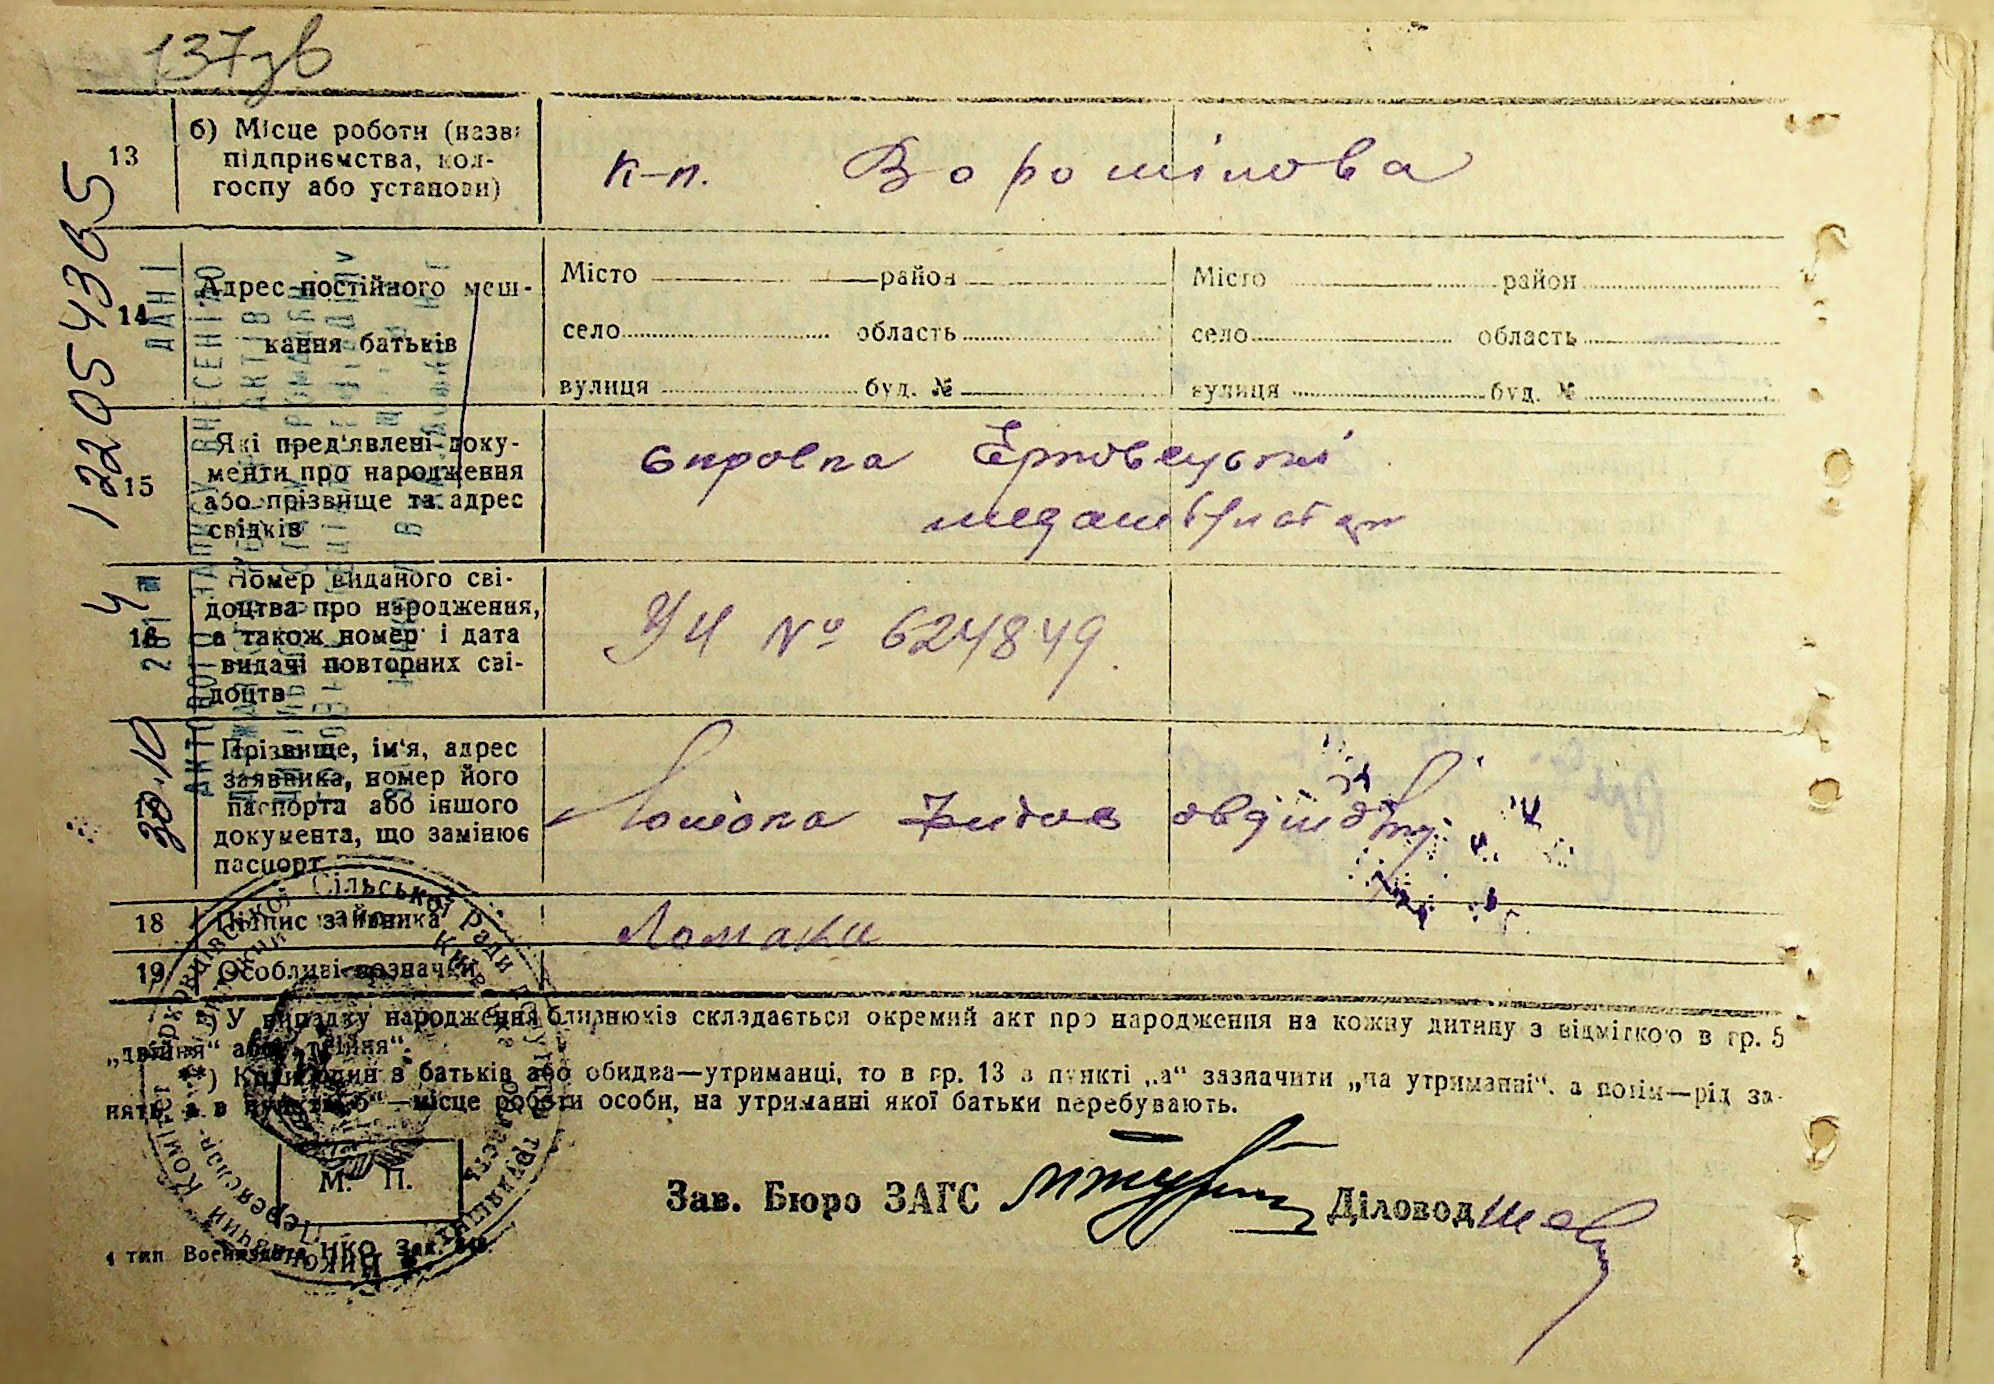 137зв
13
б) Місце роботи (назва
підприємства, кол-
госпу або установи)
к-п. Ворошілова
122054365
14
Адрес постійного меш-
кання батьків
Місто район
село область
вулиця буд. №
Місто район
село область
вулиця буд. №
15
Які пред'явлені доку-
менти про народження
або прізвище та адрес
свідків
16
Номер виданого сві-
доцтва про народження,
а також номер і дата
видачі повторних сві-
доцтв
УЧ № 624849.
Прізвище, ім'я, адрес
заявника, номер його
паспорта або іншого
документа, що замінює
паспорт
30.10
18
Підпис заявника
Ломака
19
Особливі позначки
*) У випадку народження близнюків складається окремий акт про народження на кожну дитину з відміткою в гр. 5
„двійня“ або „трійня“.
**) Коли один з батьків або обидва—утриманці, то в гр. 13 в пункті „а“ зазначити „на утриманні“, а потім—рід за-
нять, а в пункті „б“—місце роботи особи, на утриманні якої батьки перебувають.
М. П.
Зав. Бюро ЗАГС
Діловод
4 тип Воениздата НКО Зак.
Виконавчий Комітет Сільської Ради Депутатів трудящих